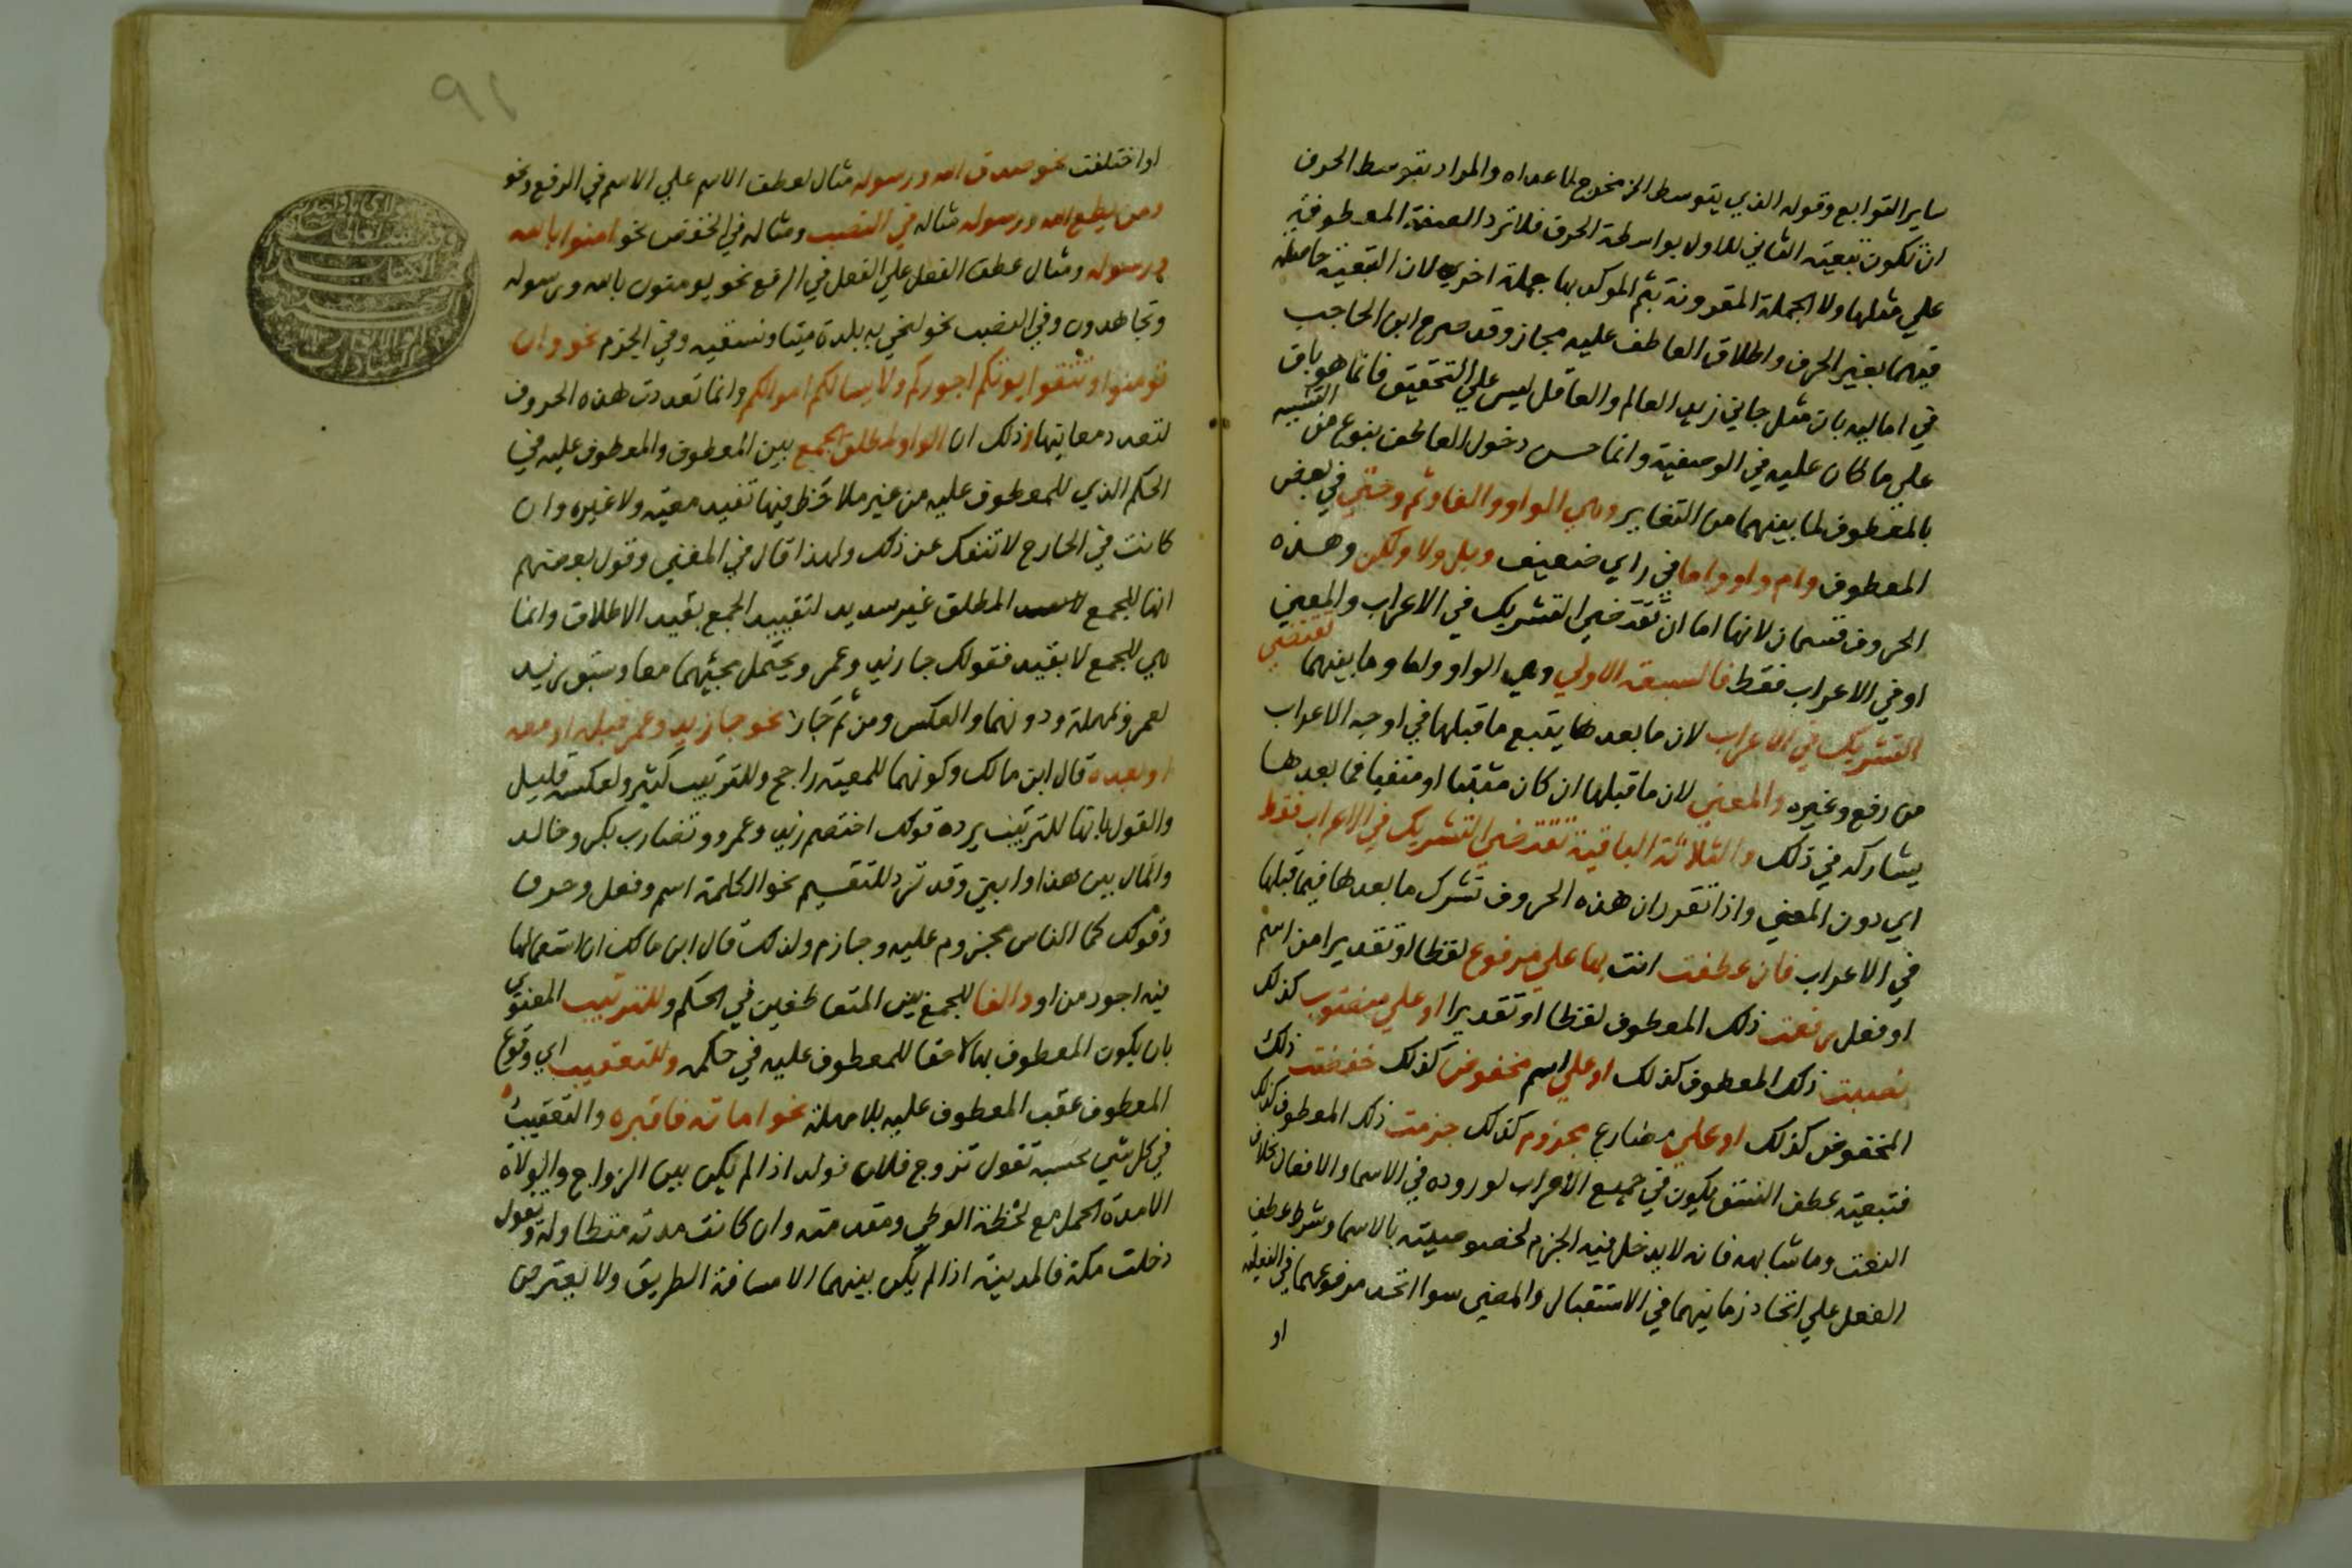 ساير التوابع وقوله الذي يتوسط الخ مخرج لما عداه والمراد بتوسط الحرف
ان تكون تبعية الثاني للاول بواسطة الحرف فلا ترد الصفة المعطوفة
علي مثلها ولا الجملة المقرونة بثم الموكد بها جملة اخري لان التبعية حاصلة
فيهما بغير الحرف واطلاق العاطف عليه مجاز وقد صرح ابن الحاجب
في اماليه بان مثل جاني زيد العالم والعاقل ليس علي التحقيق فانما هو باق
علي ما كان عليه في الوصفية وانما حسن دخول العاطف بنوع من التشبيه
بالمعطوف لما بينهما من التغاير وهي الواو والفا وثم وحتي في بعض
المعطوف وام واو واما في راي ضعيف وبل ولا ولكن وهذه
الحروف قسمان لانها اما ان تقتضي التشريك في الاعراب والمعني
او في الاعراب فقط فالسبعة الاولي وهي الواو واما وما بينهما تقتضي
التشريك في الاعراب لان ما بعدها يتبع ما قبلها في اوجه الاعراب
من رفع وغيره والمعني لان ما قبلها ان كان مثبتا او منفيا فما بعدها
يشاركه في ذلك والثلاثة الباقية تقتضي التشريك في الاعراب فقط
اي دون المعني واذا تقرر ان هذه الحروف تشرك ما بعدها فيما قبلها
في الاعراب فان عطفت انت بها علي مرفوع لفظا او تقديرا من اسم
او فعل رفعت ذلك المعطوف لفظا او تقديرا او علي منصوب كذلك
نصبت ذلك المعطوف كذلك او علي اسم مخفوض كذلك خفضت ذلك
المخفوض كذلك او علي مضارع مجزوم كذلك جزمت ذلك المعطوف كذلك
فتبعية عطف النسق يكون في جميع الاعراب لوروده في الاسما والافعال بخلاف
النعت وما شابهه فانه لا يدخل فيه الجزم لخصوصيته بالاسما وشرط عطف
الفعل علي الفعل اتحاد زمانيهما في الاستقبال والمضي سوا اتحد مرفوعهما في الفعلية
او
٩١
او اختلفت نحو صدق الله ورسوله مثال لعطف الاسم علي الاسم في الرفع ونحو
ومن يطع الله ورسوله مثاله في النصب ومثاله في الخفض نحو امنوا بالله
ورسوله ومثال عطف الفعل علي الفعل في الرفع نحو يومنون بالله ورسوله
وتجاهدون وفي النصب نحو لنحيي به بلدة ميتا ونسقيه وفي الجزم نحو وان
تومنوا وتتقوا يوتكم اجوركم ولا يسالكم اموالكم وانما تعددت هذه الحروف
لتعدد معانيها وذلك ان الواو لمطلق الجمع بين المعطوف والمعطوف عليه في
الحكم الذي للمعطوف عليه من غير ملاحظ فيها تقييد معية ولا غيره وان
كانت في الخارج لا تنفك عن ذلك ولهذا قال في المغني وقول بعضهم
انها للجمع المطلق غير سديد لتقييد الجمع بقيد الاطلاق وانما
هي للجمع لا بقيد فقولك جا زيد وعمرو يحتمل مجيئهما معا وسبق زيد
لعمرو بمهلة ودونهما والعكس ومن ثم جاز نحو جا زيد وعمرو قبله او معه
او بعده قال ابن مالك وكونهما للمعية راجح وللترتيب كثير ولعكسه قليل
والقول بانها للترتيب يرده قولك اختصم زيد وعمرو وتضارب بكر وخالد
والمال بين هذا وابني وقد ترد للتقسيم نحو الكلمة اسم وفعل وحرف
وقولك كما الناس مجزوم عليه وجازم ولذلك قال ابن مالك ان استعمالها
فيه اجود من او والفا للجمع بين المتعاطفين في الحكم وللترتيب المعنوي
بان يكون المعطوف بها لاحقا للمعطوف عليه في حكمه وللتعقيب اي وقوع
المعطوف عقب المعطوف عليه بلا مهلة نحو اماته فاقبره والتعقيب
في كل شي بحسبه تقول تزوج فلان فولد له اذا لم يكن بين الزواج والولادة
الا مدة الحمل مع لحظة الوطي ومقدمته وان كانت مدته متطاولة وتقول
دخلت مكة فالمدينة اذا لم يكن بينهما الا مسافة الطريق ولا يعترض